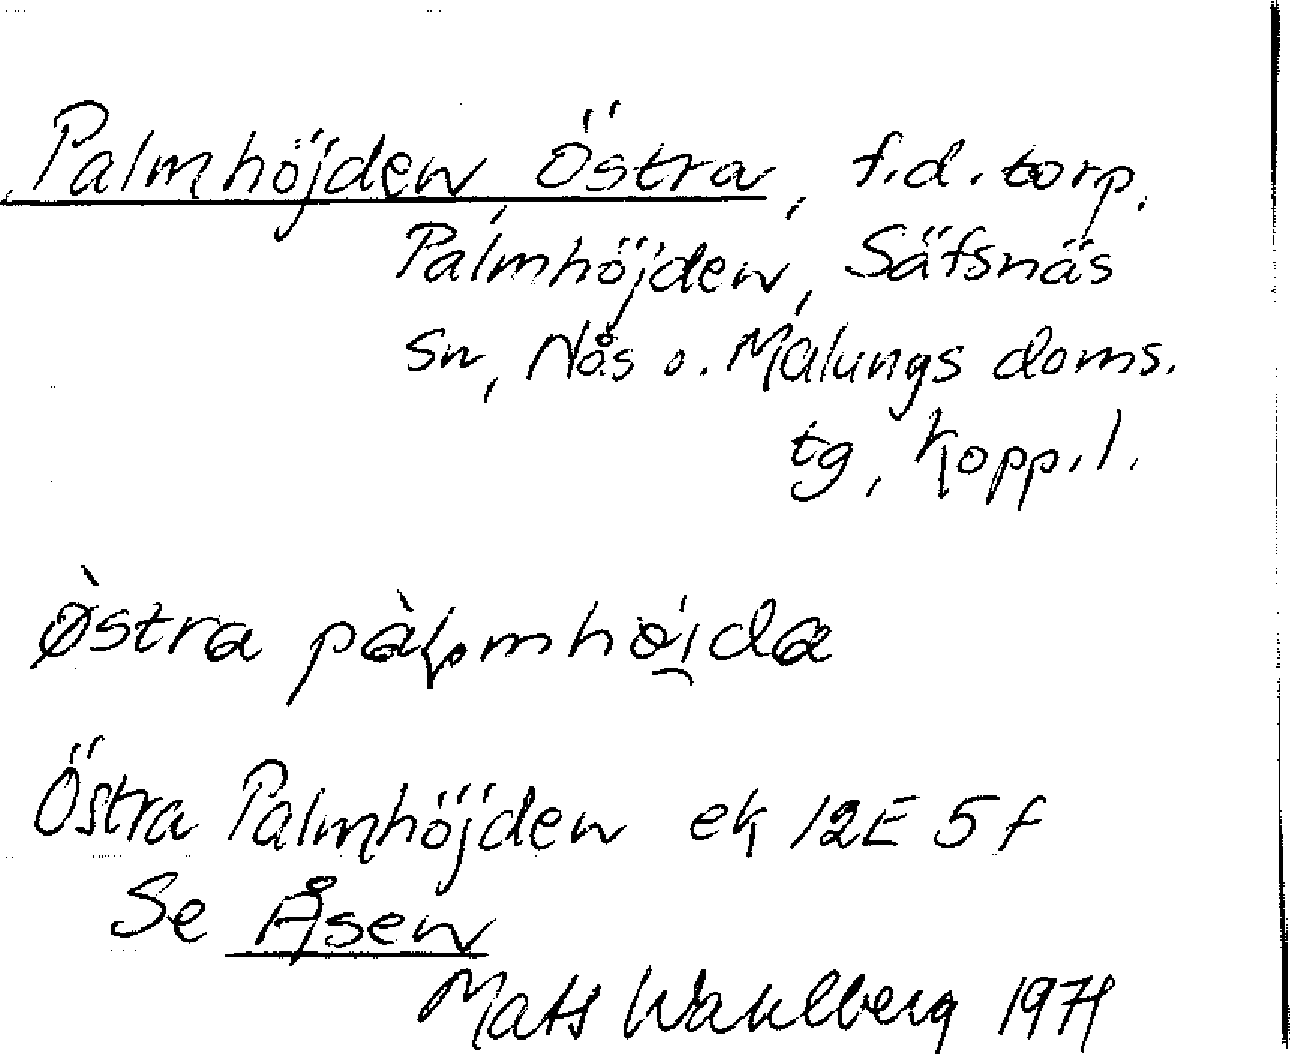 Palmhöjden, Östra, f.d. torp.
Palmhöjden, Säfsnäs
sn, Nås o. Malungs doms.
tg, Kopp.l.
Östra Palmhöjden ek 12E 5f
Se Åsen
Mats Wahlberg 1971